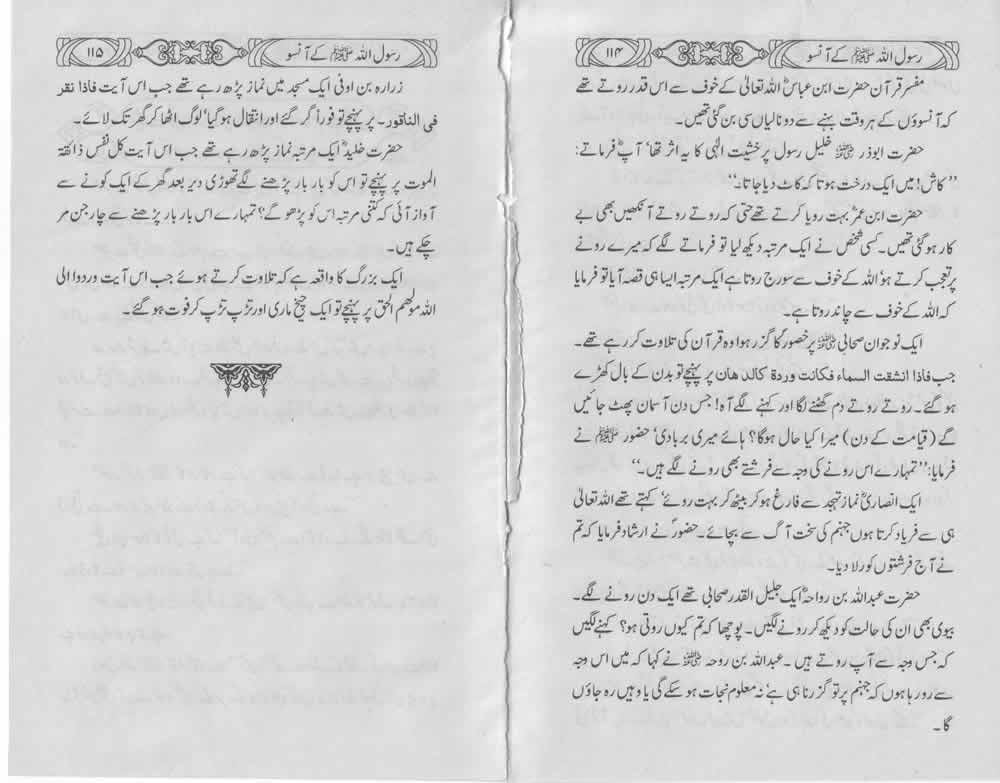 رسول اللہ ﷺ کے آنسو ۱۱۴
مفسر قرآن حضرت ابن عباسؓ اللہ تعالیٰ کے خوف سے اس قدر روتے تھے
کہ آنسوؤں کے ہر وقت بہنے سے دو نالیاں سی بن گئی تھیں۔
حضرت ابوذر ﷺ خلیل رسول پر خشیت الٰہی کا یہ اثر تھا' آپؓ فرماتے:
''کاش! میں ایک درخت ہوتا کہ کاٹ دیا جاتا۔''
حضرت ابن عمرؓ بہت رویا کرتے تھے حتی کہ روتے روتے آنکھیں بھی بے
کار ہو گئی تھیں۔ کسی شخص نے ایک مرتبہ دیکھ لیا تو فرمانے لگے کہ میرے رونے
پر تعجب کرتے ہو' اللہ کے خوف سے سورج روتا ہے ایک مرتبہ ایسا ہی قصہ آیا تو فرمایا
کہ اللہ کے خوف سے چاند روتا ہے۔
ایک نوجوان صحابی ﷺ پر حضورؐ کا گزر ہوا وہ قرآن کی تلاوت کر رہے تھے۔
جب فاذا انشقت السماء فکانت وردة کالدھان پر پہنچے تو بدن کے بال کھڑے
ہو گئے۔ روتے روتے دم گھٹنے لگا اور کہنے لگے آہ! جس دن آسمان پھٹ جائیں
گے (قیامت کے دن) میرا کیا حال ہوگا؟ ہائے میری بربادی' حضور ﷺ نے
فرمایا: ''تمہارے اس رونے کی وجہ سے فرشتے بھی رونے لگے ہیں۔''
ایک انصاریؓ نماز تہجد سے فارغ ہو کر بیٹھ کر بہت روئے' کہتے تھے اللہ تعالیٰ
ہی سے فریاد کرتا ہوں جہنم کی سخت آگ سے بچائے۔ حضورؐ نے ارشاد فرمایا کہ تم
نے آج فرشتوں کو رلا دیا۔
حضرت عبداللہ بن رواحہؓ ایک جلیل القدر صحابی تھے ایک دن رونے لگے۔
بیوی بھی ان کی حالت کو دیکھ کر رونے لگیں۔ پوچھا کہ تم کیوں روتی ہو؟ کہنے لگیں
کہ جس وجہ سے آپ روتے ہیں۔ عبداللہ بن روحہ ﷺ نے کہا کہ میں اس وجہ
سے رو رہا ہوں کہ جہنم پر تو گزرنا ہی ہے' نہ معلوم نجات ہو سکے گی یا وہیں رہ جاؤں
گا۔
رسول اللہ ﷺ کے آنسو ۱۱۵
زرارہ بن اوفی ایک مسجد میں نماز پڑھ رہے تھے جب اس آیت فاذا نقر
فی الناقور۔ پر پہنچے تو فوراً گر گئے اور انتقال ہو گیا' لوگ اٹھا کر گھر تک لائے۔
حضرت خلیدؒ ایک مرتبہ نماز پڑھ رہے تھے جب اس آیت کل نفس ذائقة
الموت پر پہنچے تو اس کو بار بار پڑھنے لگے تھوڑی دیر بعد گھر کے ایک کونے سے
آواز آئی کہ کتنی مرتبہ اس کو پڑھو گے؟ تمہارے اس بار بار پڑھنے سے چار جن مر
چکے ہیں۔
ایک بزرگ کا واقعہ ہے کہ تلاوت کرتے ہوئے جب اس آیت وردوا الی
اللہ مولھم الحق پر پہنچے تو ایک چیخ ماری اور تڑپ تڑپ کر فوت ہو گئے۔